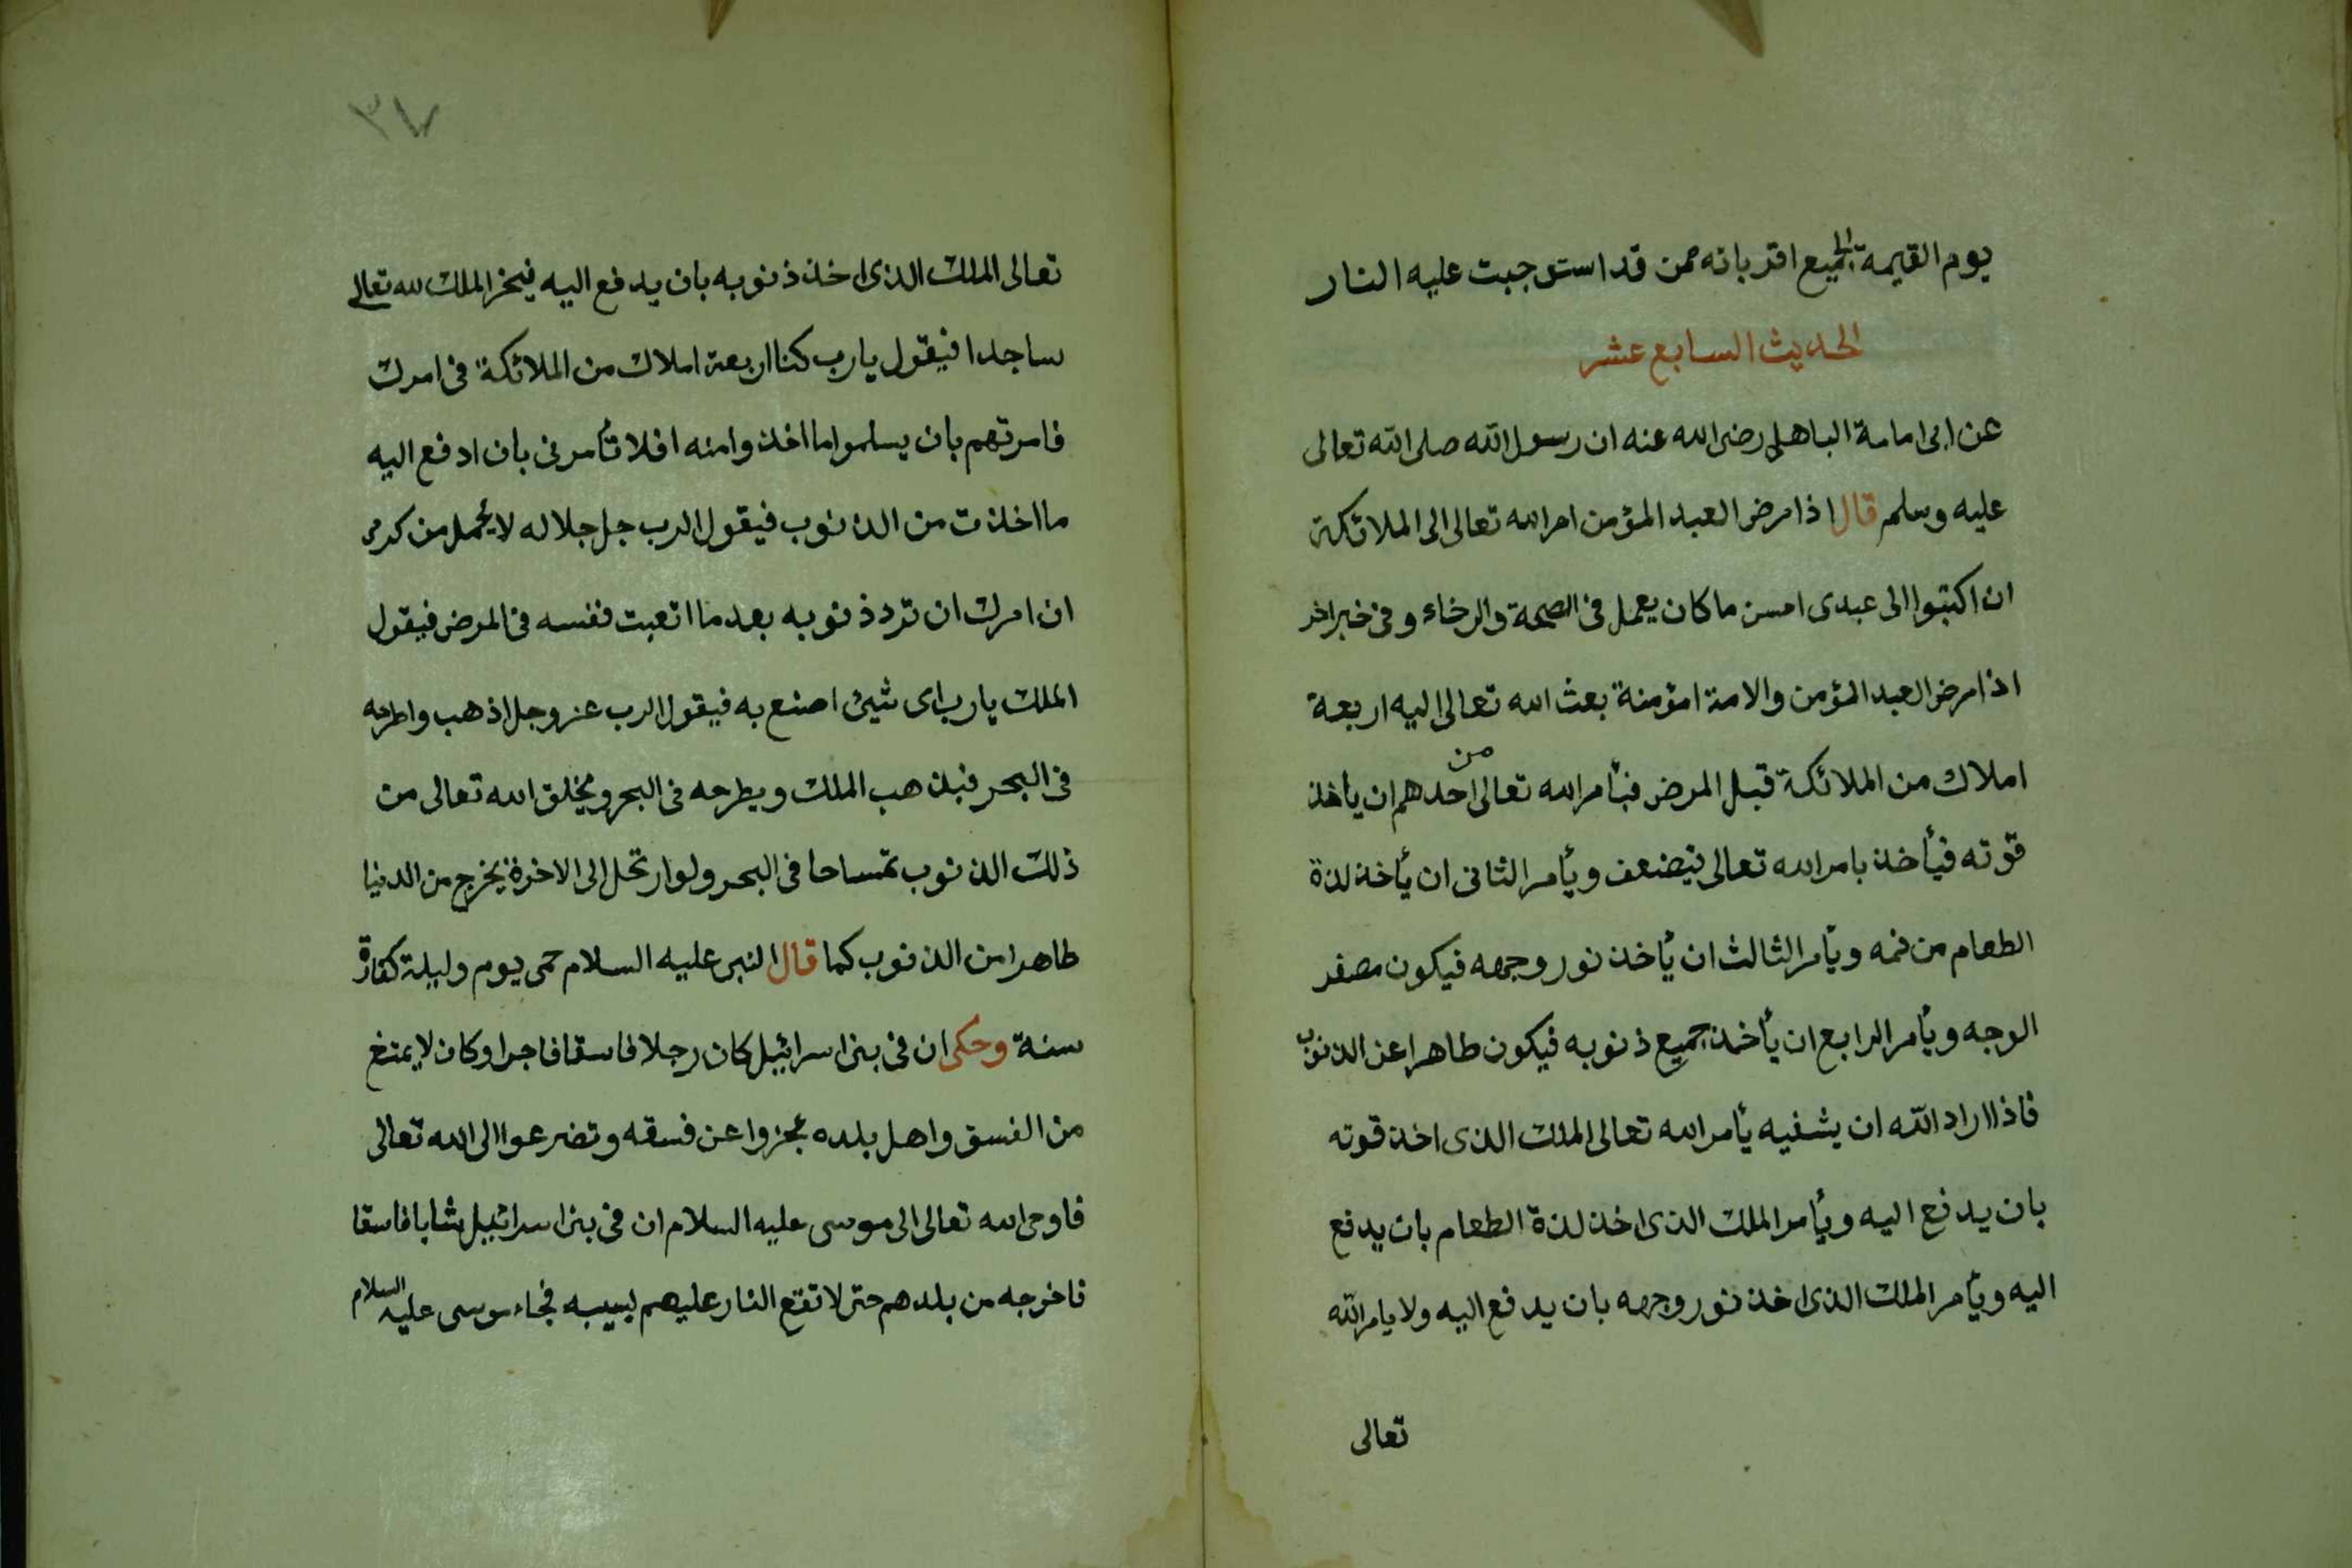 يوم القيمة الى لجميع اقربائه ممن قد استوجبت عليه النار
الحديث السابع عشر
عن ابى امامة الباهلى رضى الله عنه ان رسول الله صلى الله تعالى
عليه وسلم قال اذا مرض العبد المؤمن امر الله تعالى الى الملائكة
ان اكتبوا الى عبدى احسن ما كان يعمل فى الصحة والرخاء وفى خبر اخر
اذا مرض العبد المؤمن والامة امؤمنة بعث الله تعالى اليه اربعة
املاك من الملائكة قبل المرض فيأمر الله تعالى من احدهم ان يأخذ
قوته فيأخذ بامر الله تعالى فيضعف ويأمر الثانى ان يأخذ لذة
الطعام من فمه ويأمر الثالث ان يأخذ نور وجهه فيكون مصفر
الوجه ويأمر الرابع ان يأخذ جميع ذنوبه فيكون طاهرا عن الذنوب
فاذا اراد الله ان يشفيه يأمر الله تعالى الملك الذى اخذ قوته
بان يدفع اليه ويأمر الملك الذى اخذ لذة الطعام بان يدفع
اليه ويأمر الملك الذى اخذ نور وجهه بان يدفع اليه ولا يامر الله
تعالى
٣٧
تعالى الملك الذى اخذ ذنوبه بان يدفع اليه فيخر الملك لله تعالى
ساجدا فيقول يا رب كنا اربعة املاك من الملائكة فى امرك
فامرتهم بان يسلموا ما اخذوا منه افلا تأمرنى بان ادفع اليه
ما اخذت من الذنوب فيقول الرب جل جلاله لا يحمل من كرمى
ان امرك ان ترد ذنوبه بعد ما اتعبت نفسه فى المرض فيقول
الملك يا رب اى شيئ اصنع به فيقول الرب عز وجل اذهب واطرحه
فى البحر فيذهب الملك ويطرحه فى البحر ويخلق الله تعالى من
ذلك الذنوب تمساحا فى البحر ولو ارتحل الى الاخرة يخرج من الدنيا
طاهرا من الذنوب كما قال النبى عليه السلام حمى يوم وليلة كفارة
سنة وحكى ان فى بنى اسرائيل كان رجلا فاسقا فاجرا وكان لا يمتنع
من الفسق واهل بلده عجزوا عن فسقه وتضرعوا الى الله تعالى
فاوحى الله تعالى الى موسى عليه السلام ان فى بنى اسرائيل شابا فاسقا
فاخرجه من بلدهم حتى لا تقع النار عليهم بسببه فجاء موسى عليه السلام